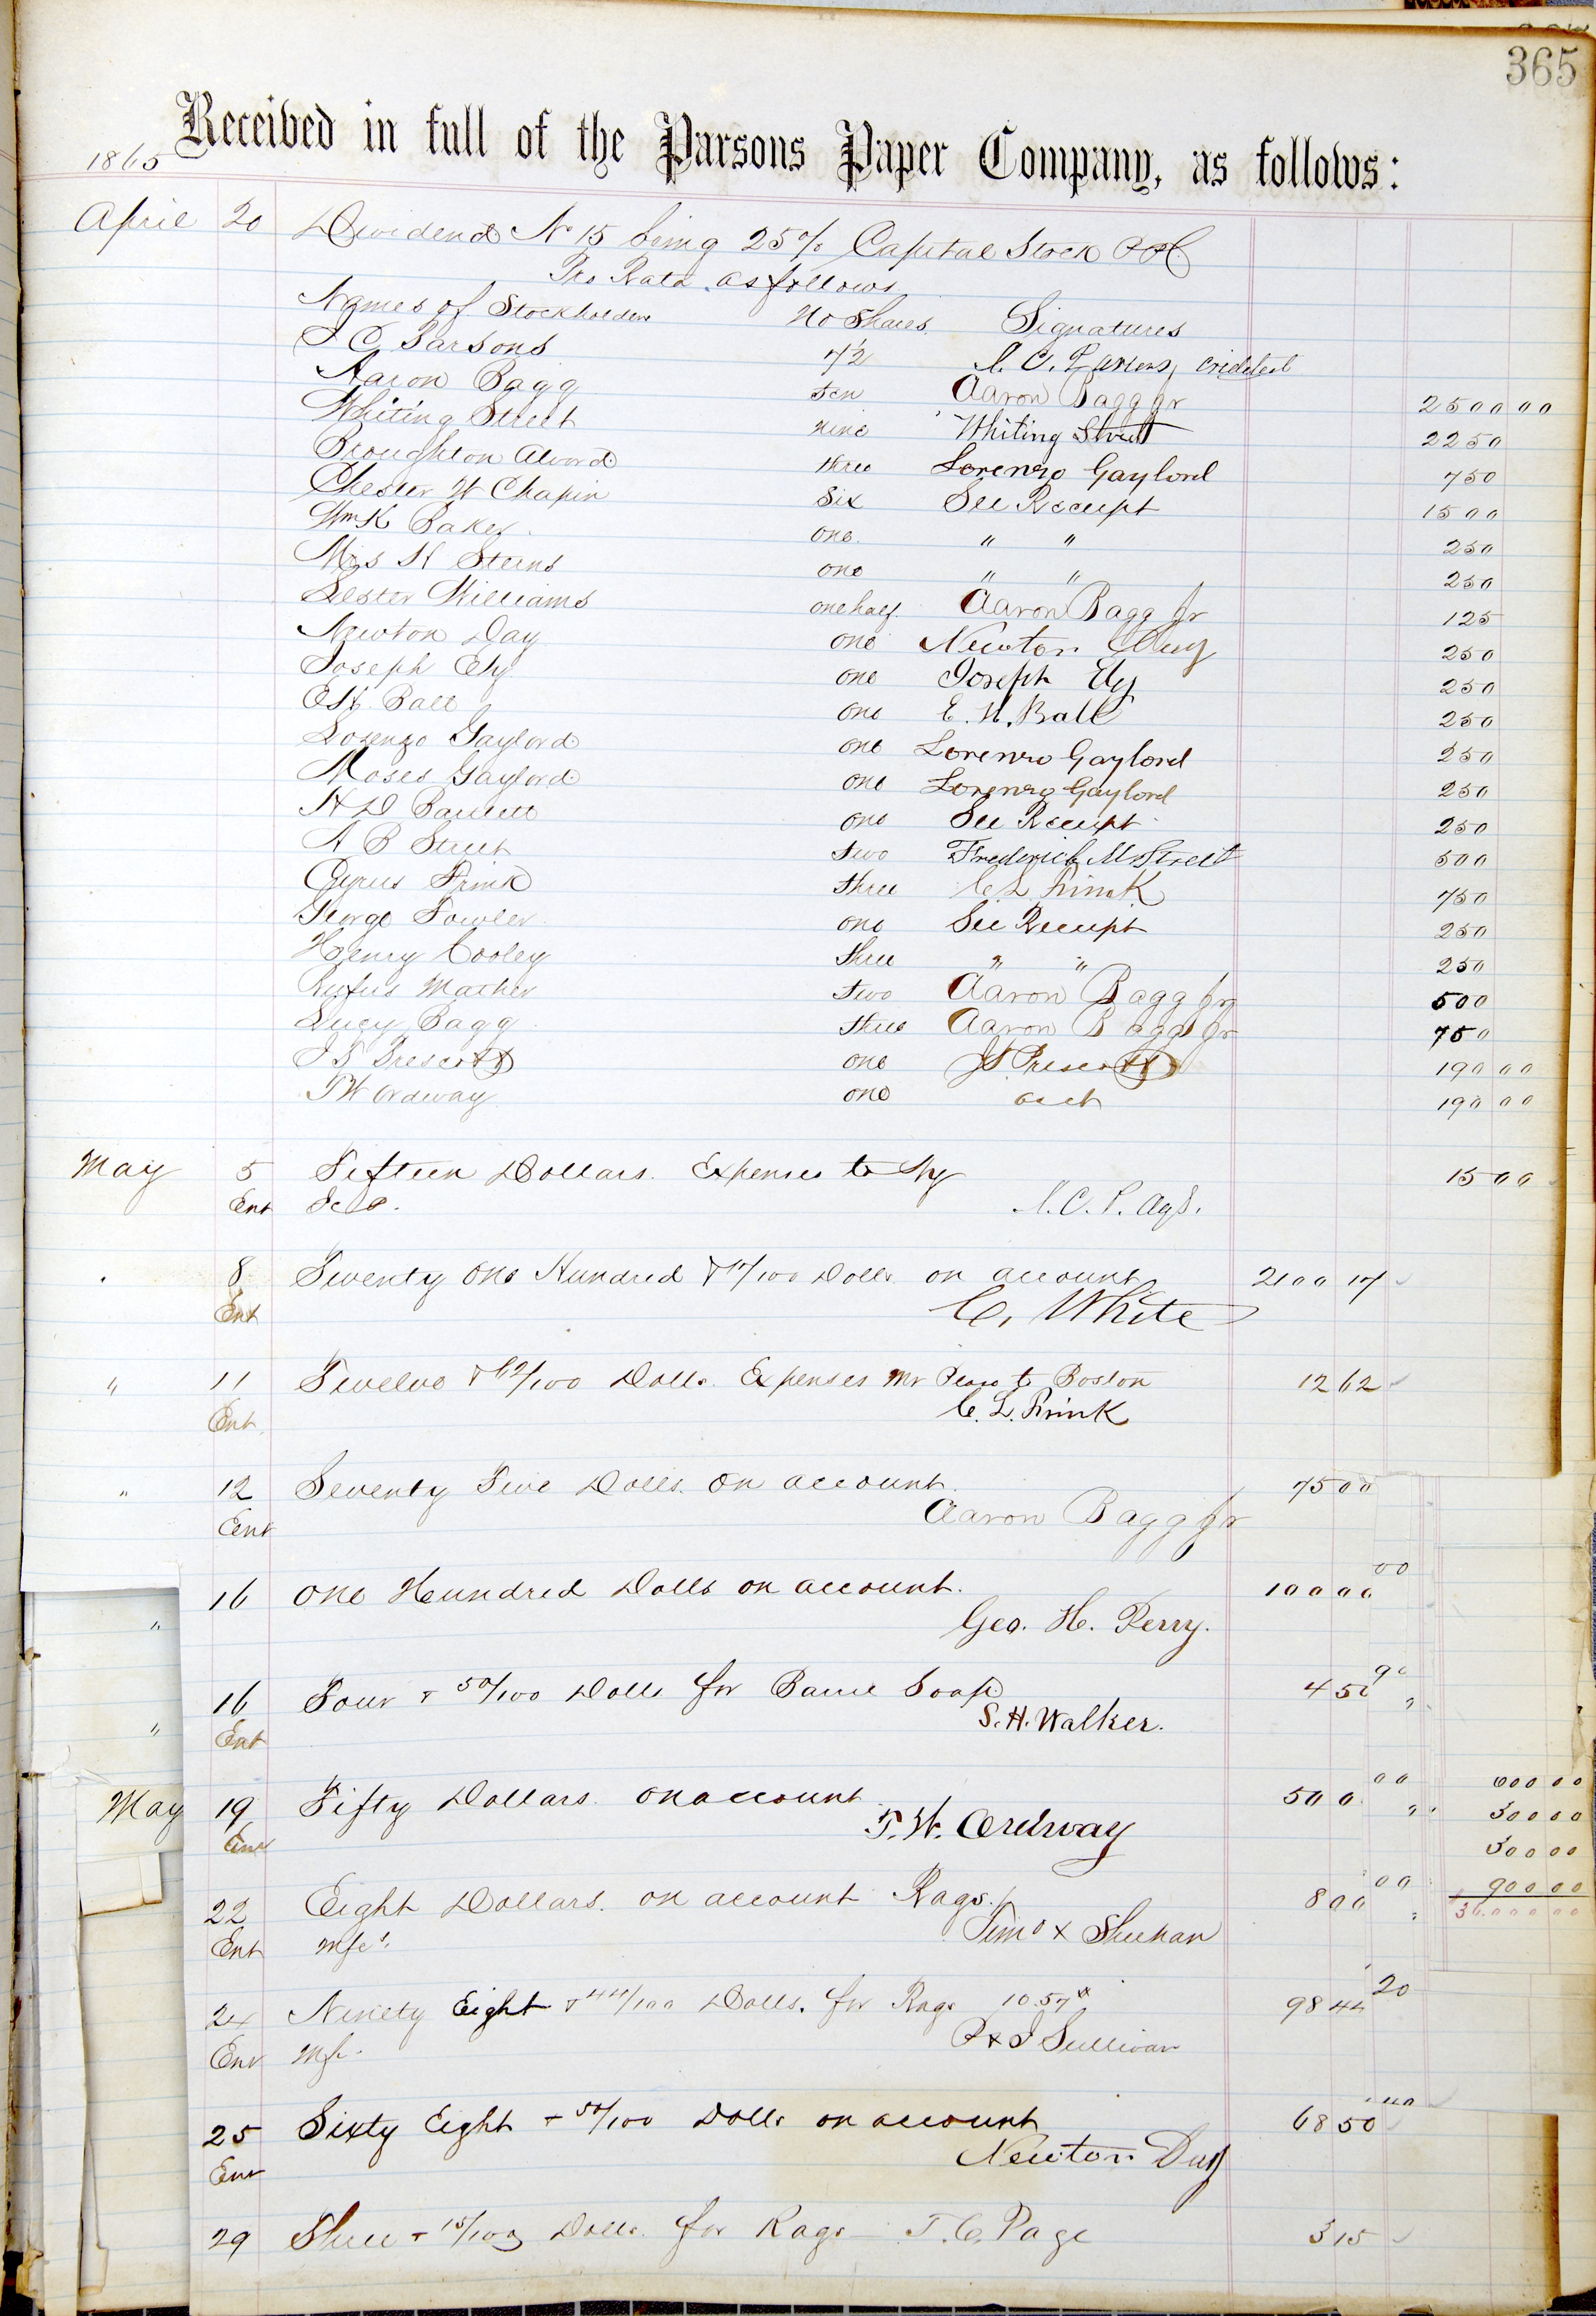 365
Received in full of the Parsons Paper Company, as follows:
1865
April 20 Dividend No 15 being 25% Capital Stock P.P.C.
Pro Rata as follows
Names of Stockholders No Shares Signatures
J C Parsons 72 J. C. Parsons, credited
Aaron Bagg ten Aaron Bagg Jr 2500 00
Whiting Street nine Whiting Street 2250
Broughton Alvord three Lorenzo Gaylord 750
Chester W Chapin Six See Receipt 1500
Wm K Baker one " " 250
Mrs H Sterns one " " 250
Lester Williams one half Aaron Bagg Jr 125
Newton Day one Newton Day 250
Joseph Ely one Joseph Ely 250
E H Ball one E. H. Ball 250
Lorenzo Gaylord one Lorenzo Gaylord 250
Moses Gaylord one Lorenzo Gaylord 250
H D Bartlett one See Receipt 250
A B Street two Frederick M Street 500
Cyrus Frink three C L Frink 750
George Fowler one See Receipt 250
Henry Cooley three " " 250
Rufus Mather two Aaron Bagg Jr 500
Lucy Bagg three Aaron Bagg Jr 750
J S Prescott one J S Prescott 190 00
T W Ordway one 190 00
May 5 Fifteen Dollars. Expenses to NY 15 00
Ent J. C. P. Agt.
8 Twenty one Hundred & 17/100 Dolls on account 2100 17
Ent C, White
" 11 Twelve & 62/100 Dolls. Expenses Mr to Boston 12 62
Ent C. L. Frink
" 12 Seventy Five Dolls. on account. 75 00
Ent Aaron Bagg Jr
16 One Hundred Dolls on account. 100 00
00
" Geo. H. Perry.
16 Four & 50/100 Dolls for Soap 4 50
" Ent S. H. Walker.
May 19 Fifty Dollars on account 50 0
00
Ent T. W. Ordway
600 00
300 00
300 00
900 00
22 Eight Dollars. on account Rags. 8 00
00
Ent Mfc. Timo x Sheehan
24 Ninety Eight & 44/100 Dolls. for Rags 1057# 98 44
20
Ent Mfc. P & J Sullivan
25 Sixty Eight & 50/100 Dolls on account 68 50
Ent Newton Day
29 Three & 15/100 Dolls. for Rags - T. C. Page 3 15